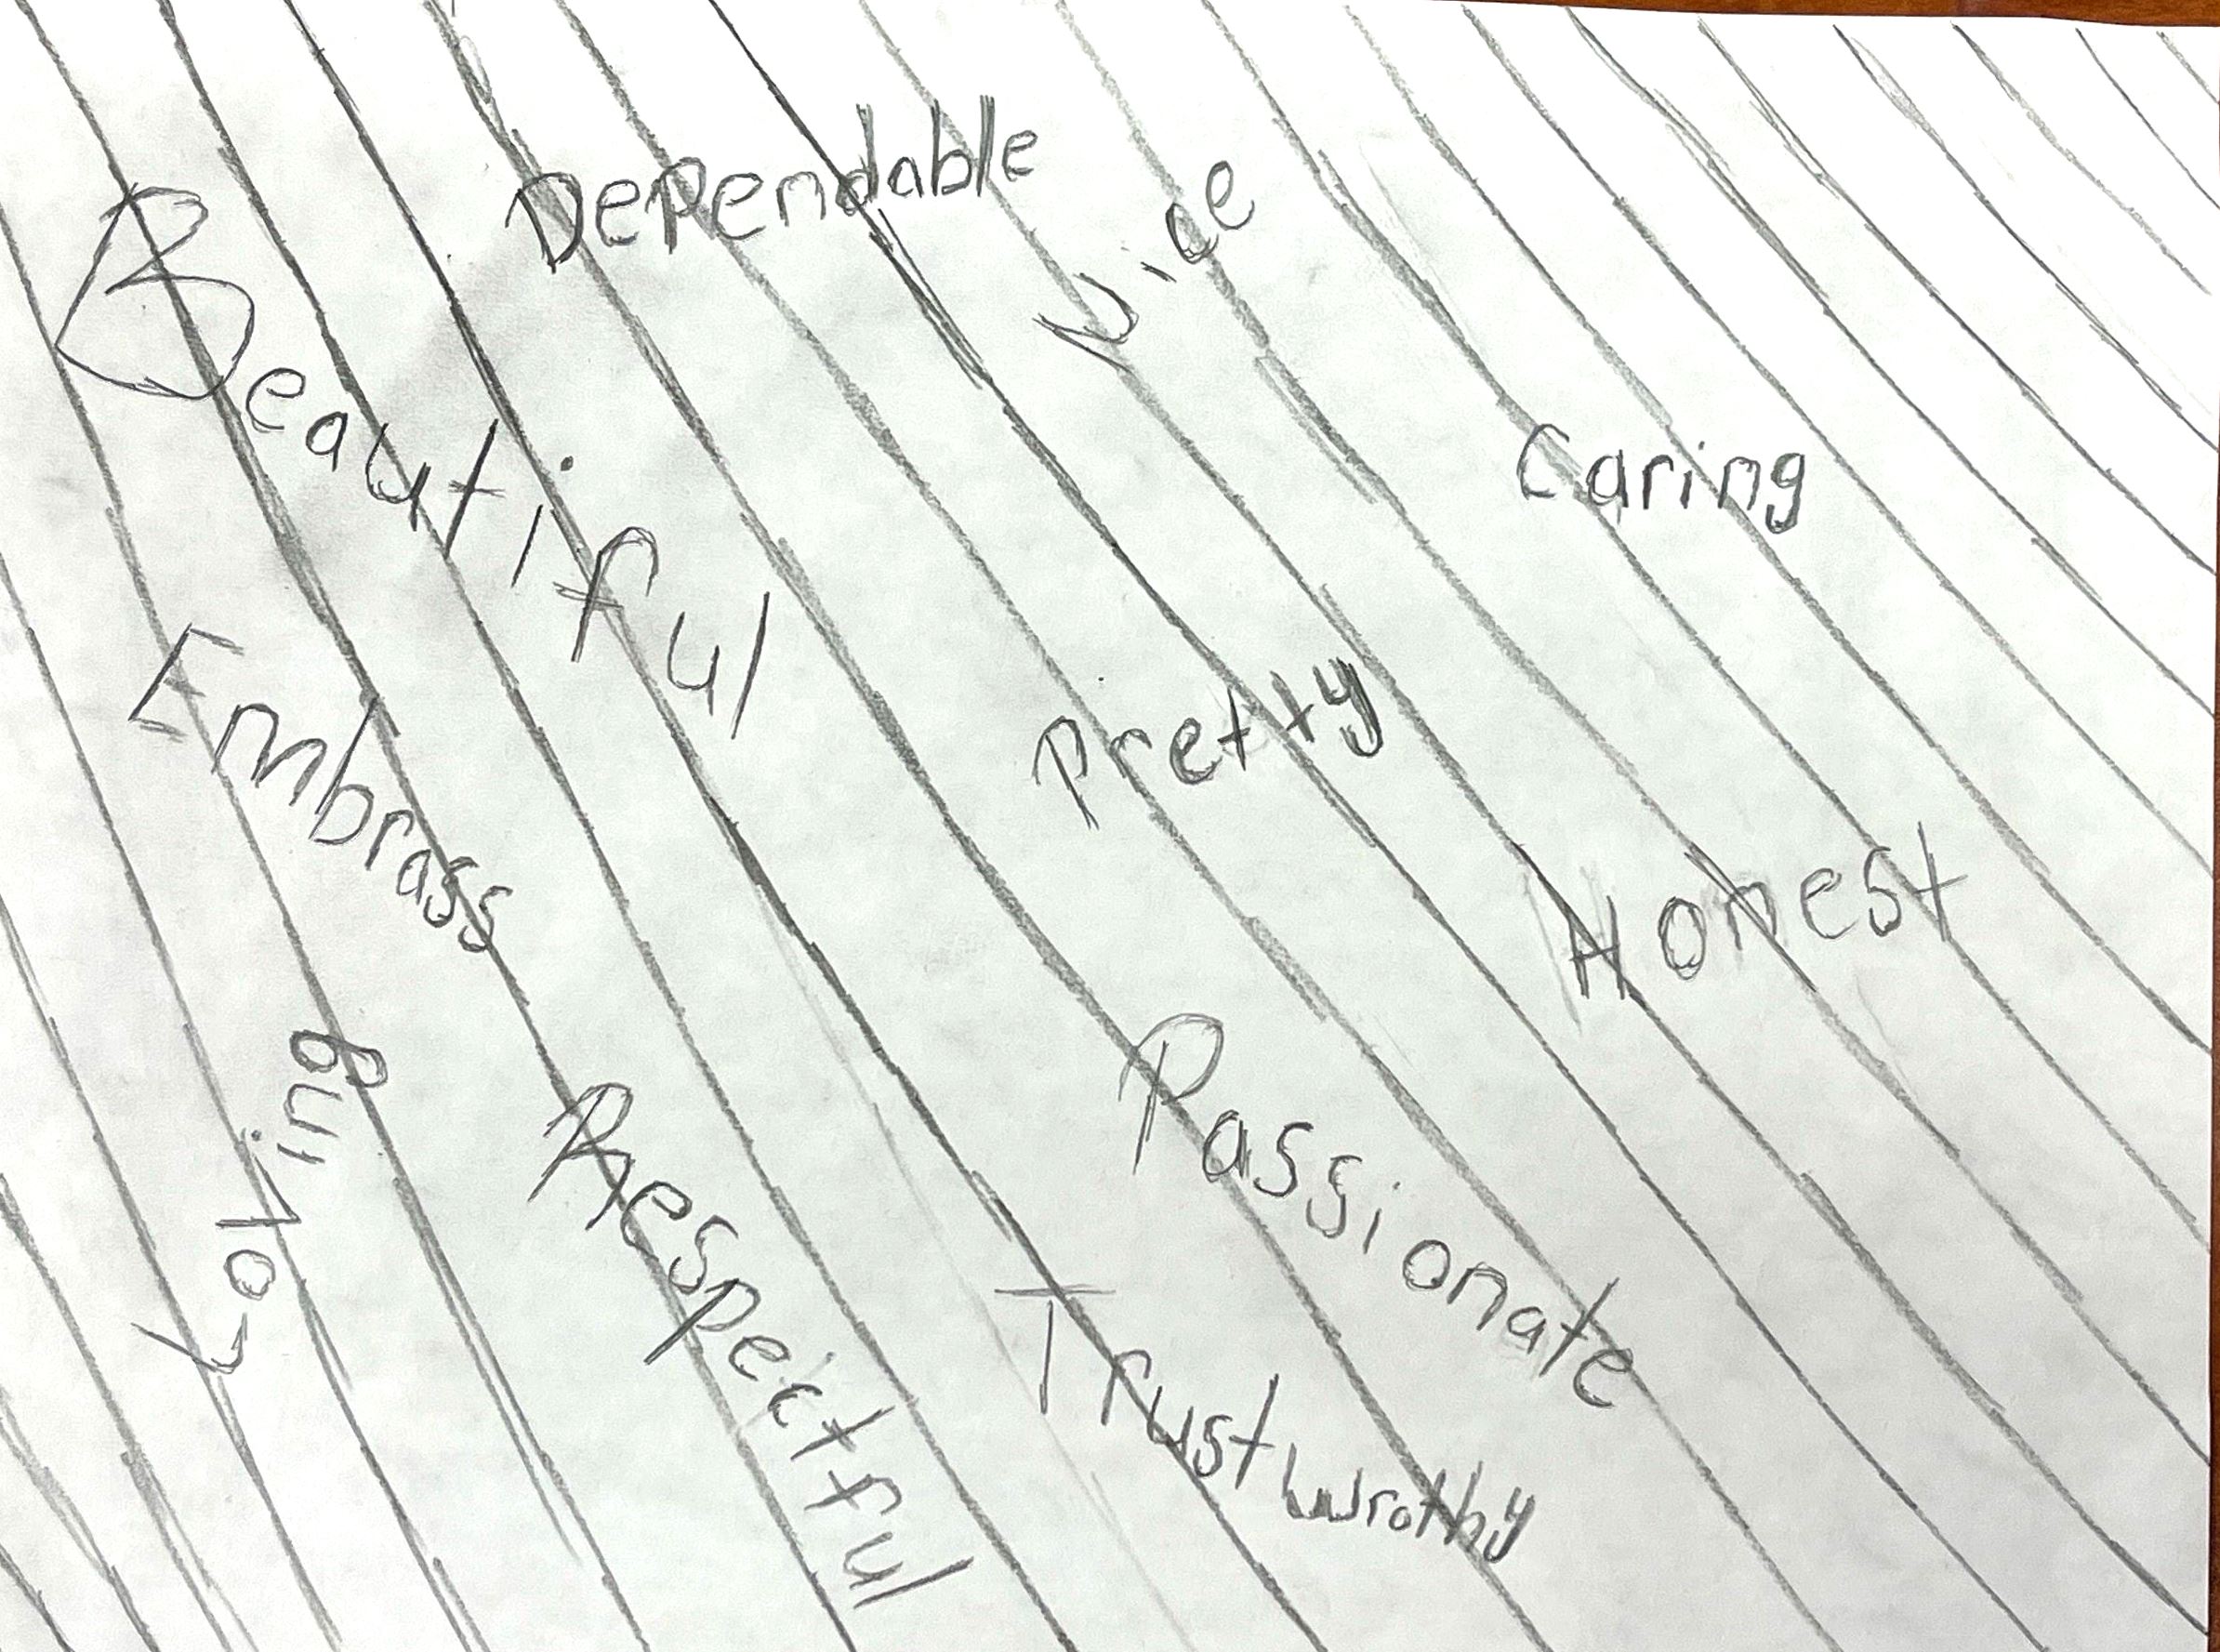 Dependable
Nice
Beautiful
Caring
Embrass
Pretty
Honest
Loving
Respectful
Passionate
Trustwrothy